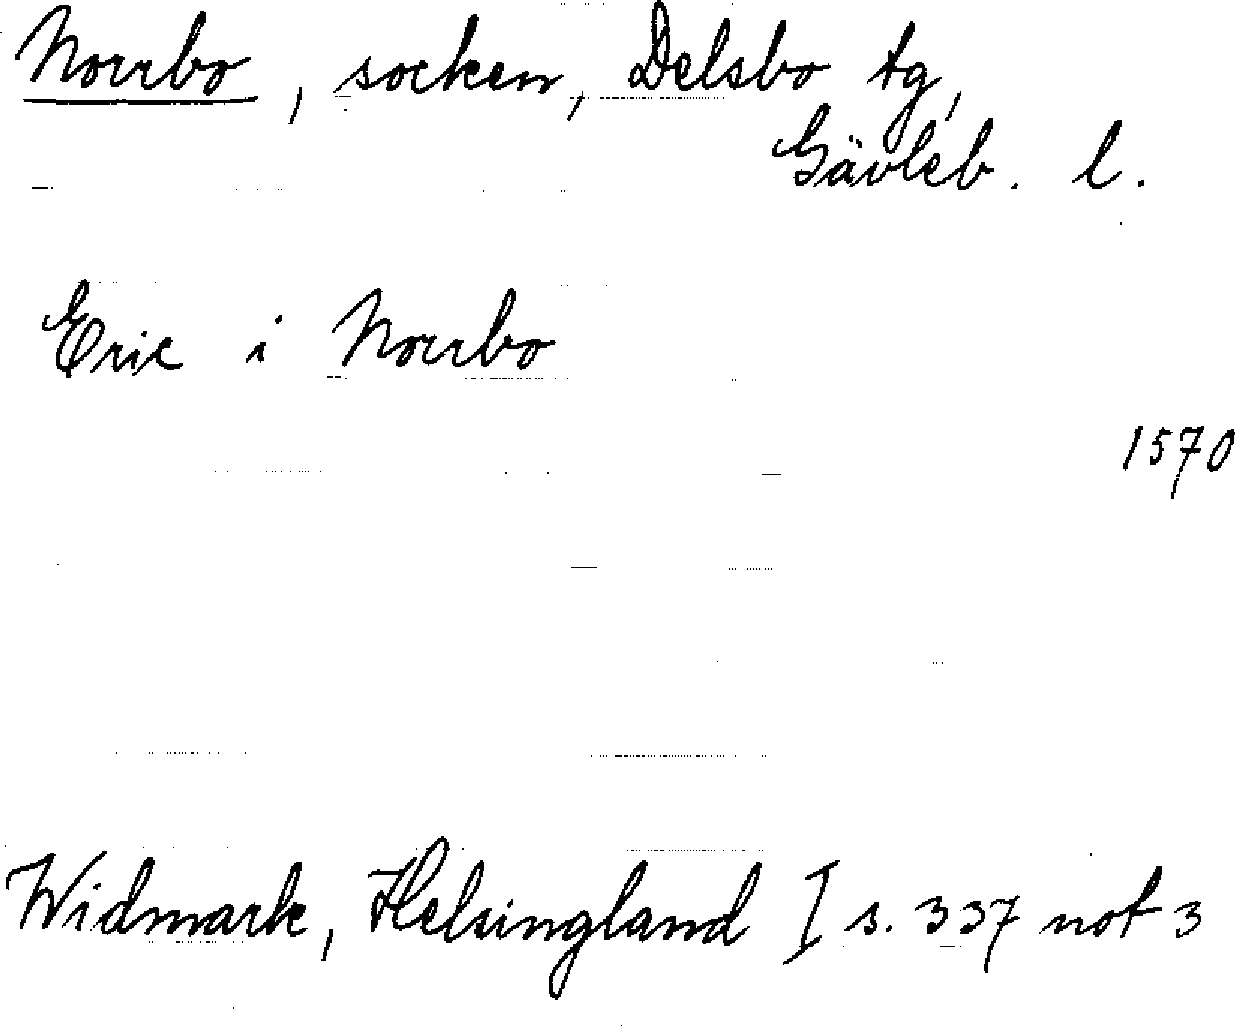 Norrbo, socken, Delsbo tg,
Gävleb. l.
Eric i Norrbo
1570
Widmark, Helsingland I s. 337 not 3